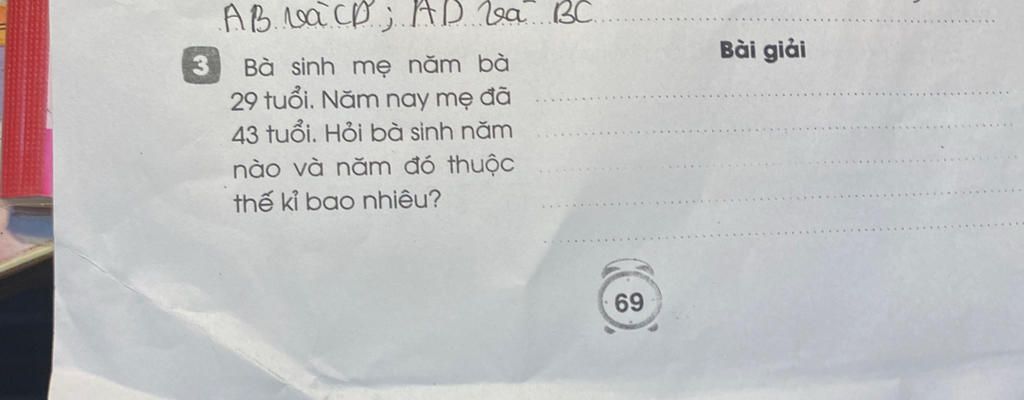 AB và CD ; AD và BC
3 Bà sinh mẹ năm bà
29 tuổi. Năm nay mẹ đã
43 tuổi. Hỏi bà sinh năm
nào và năm đó thuộc
thế kỉ bao nhiêu?
Bài giải
69